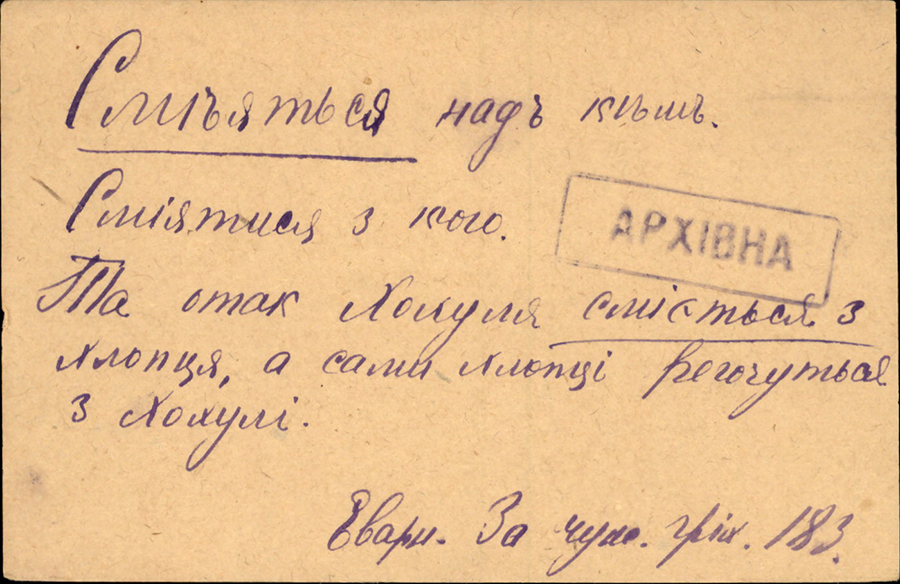 Смѣяться надъ кѣмъ.
Сміятися з кого.
АРХІВНА
Та отак Хохуля сміється з
хлопця, а сами хлопці регочуться
з Хохулі.
Еварн. За чуж. гріх. 183.